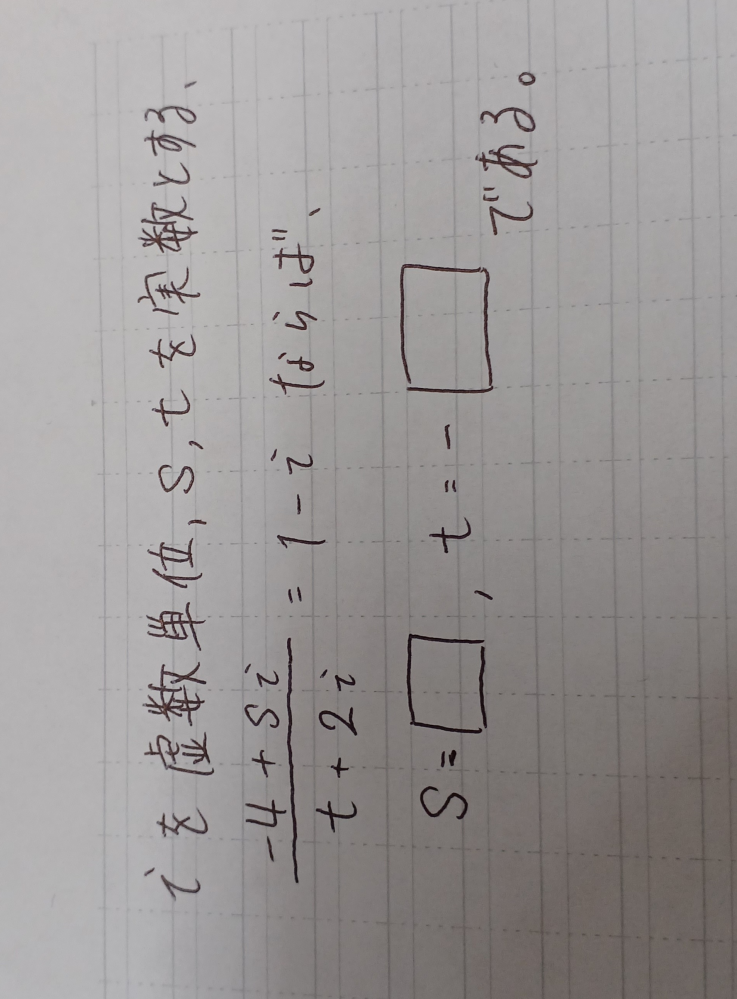 iを虚数単位, s, tを実数とする、
(-4+si)/(t+2i) = 1-i ならば、
s=□, t=-□ である。